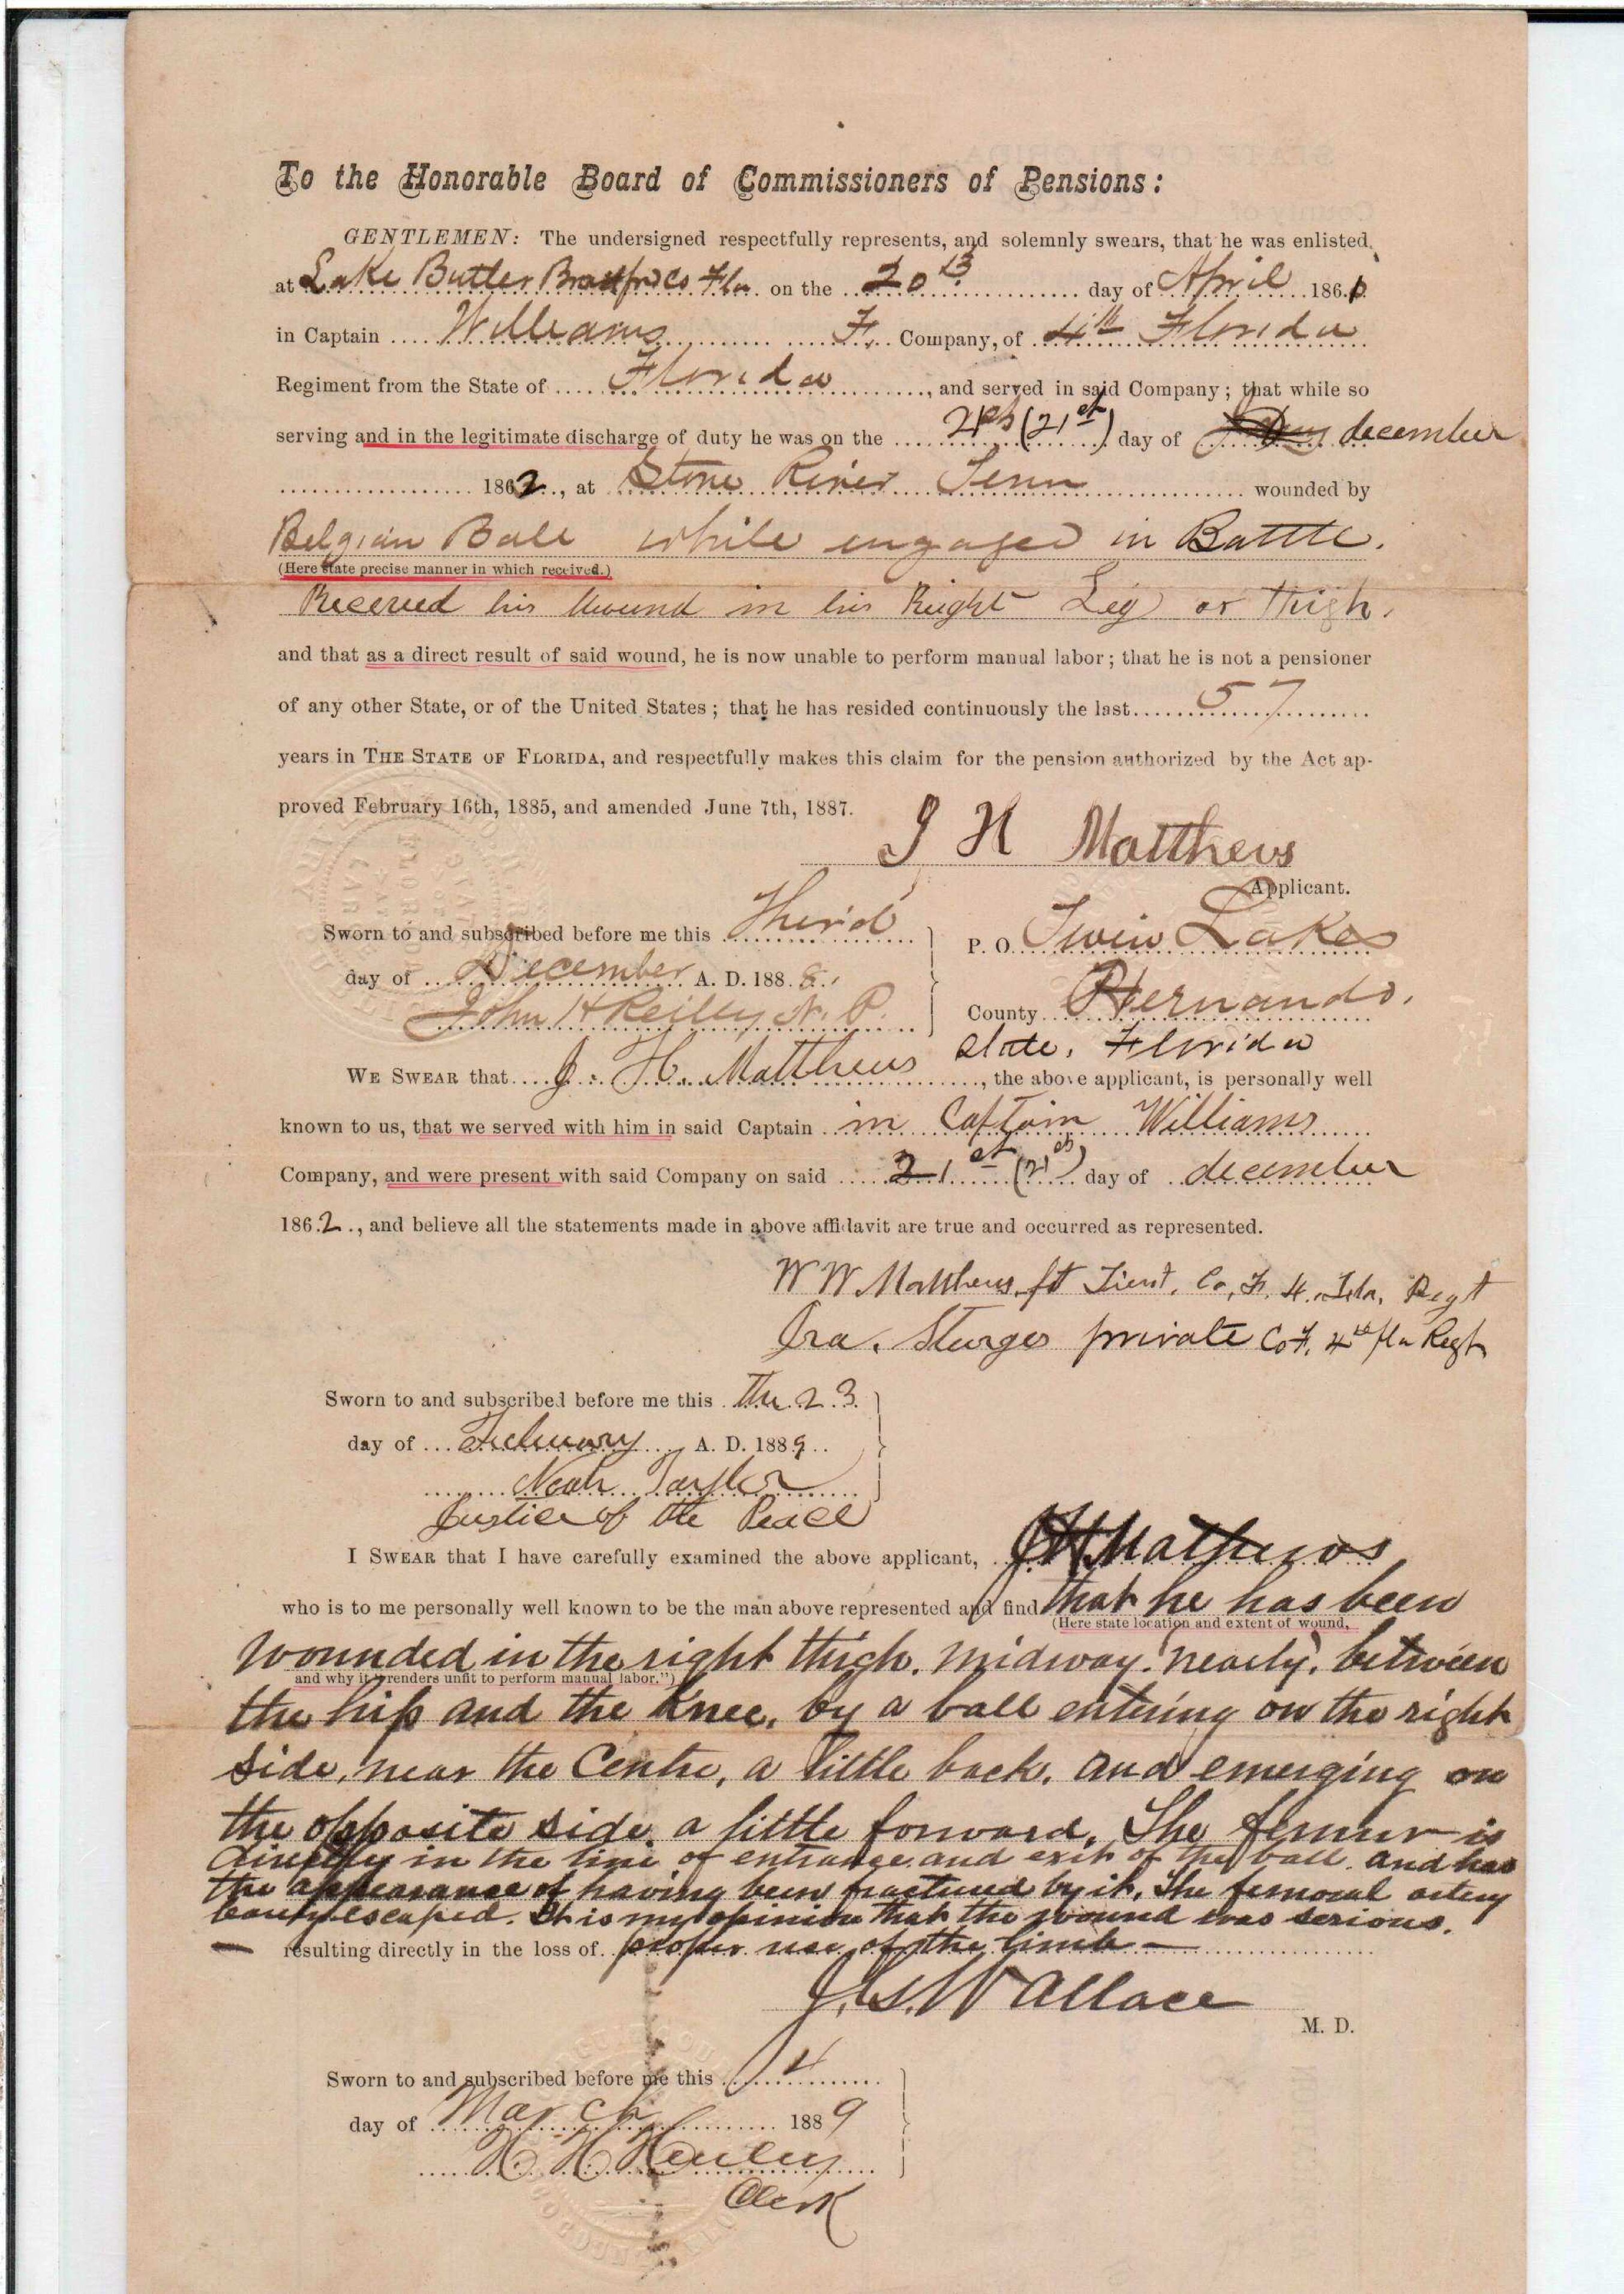 To the Honorable Board of Commissioners of Pensions:
GENTLEMEN: The undersigned respectfully represents, and solemnly swears, that he was enlisted
at Lake Butler Co Fla on the 20 day of April 186
in Captain Williams F. Company, of 4th Florida
Regiment from the State of Florida, and served in said Company; that while so
serving and in the legitimate discharge of duty he was on the (21st) day of december
1862, at Stone River Tenn wounded by
Belgian Ball while engaged in Battle.
(Here state precise manner in which received.)
Received his Wound in his Right Leg or thigh.
and that as a direct result of said wound, he is now unable to perform manual labor; that he is not a pensioner
of any other State, or of the United States; that he has resided continuously the last 57
years in THE STATE OF FLORIDA, and respectfully makes this claim for the pension authorized by the Act ap-
proved February 16th, 1885, and amended June 7th, 1887.
J H Matthews
Applicant.
Sworn to and subscribed before me this Third
day of December A. D. 1888.
John H Reilly N. P.
P. O. Twin Lakes
County Hernando.
State, Florida
WE SWEAR that J. H. Matthews, the above applicant, is personally well
known to us, that we served with him in said Captain in Captain Williams
Company, and were present with said Company on said 21st (21st) day of december
1862., and believe all the statements made in above affidavit are true and occurred as represented.
W W Matthews Lieut. Co, F. 4. Fla, Regt
Ira. Sturges private Co F, 4th fla Regt
Sworn to and subscribed before me this The 23
day of February A. D. 1889
Noah Taylor
Justice of the Peace
I SWEAR that I have carefully examined the above applicant, J H Mathews
who is to me personally well known to be the man above represented and find that he has been
(Here state location and extent of wound,
wounded in the right thigh. midway. nearly. between
and why it renders unfit to perform manual labor.")
the hip and the knee, by a ball entering on the right
side, near the Centre, a little back. and emerging on
the opposite side, a little forward. The femur is
directly in the line of entrance and exit of the ball. and has
the appearance of having been fractured by it. The femoral artery
barely escaped. It is my opinion that the wound was serious.
— resulting directly in the loss of proper use of the limb —
J. S. Wallace
M. D.
Sworn to and subscribed before me this 4
day of March 1889
H Henley
Clerk